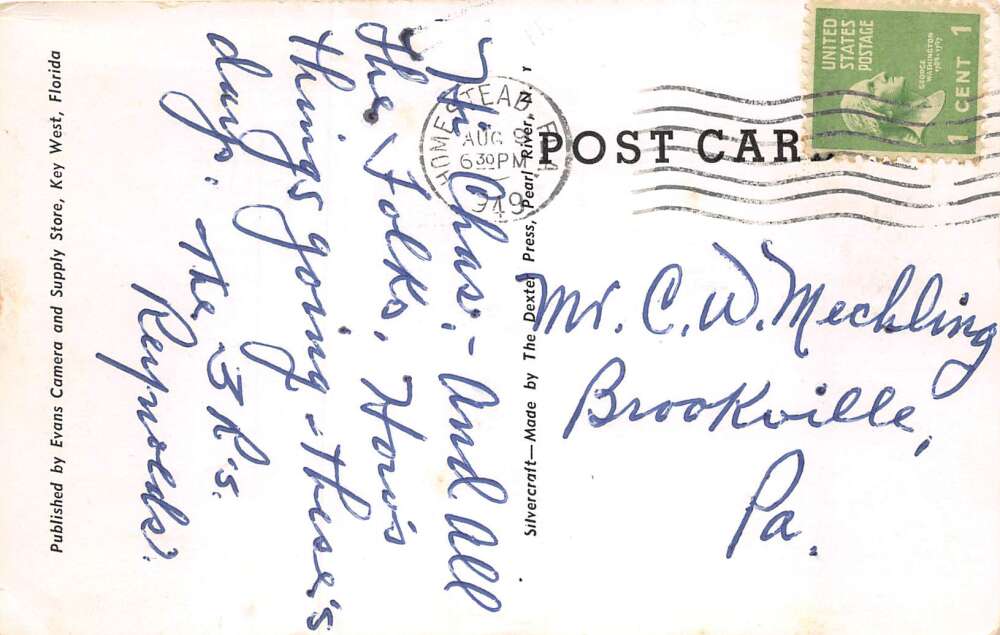 Hi Chas. – And All
the Folks, How's
things going – these's
days. The 3 R's.
Reynolds?
Published by Evans Camera and Supply Store, Key West, Florida
Silvercraft—Made by The Dexter Press, Pearl River, N. Y
POST CARD
HOMESTEAD, FLA
AUG 9
6 30 PM
1949
UNITED
STATES
POSTAGE
GEORGE
WASHINGTON
1789-1797
1 CENT 1
Mr. C. W. Mechling
Brookville,
Pa.